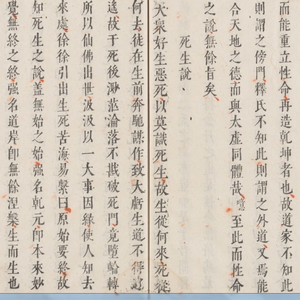 而能重立性命再造乾坤者也故道家不知此
則謂之傍門釋氏不知此則謂之外道又焉能
合天地之德而與太虛同體哉噫至此而性命
之說無餘旨矣
死生說
大衆好生惡死以莫識死生故生從何來死從
何去徒在生前奔馳謀作致大虧生道不得
遠故于死後渺茫淪落不戡破死門竟墮輪轉
所以仙佛出世汲汲以一大事因緣使人知去
來處徐徐引出生死苦海易繫曰原始要終故
知死生之說蓋無始之始強名乾元卽本來妙
覺無終之終強名道岸卽無餘涅槃生而生也